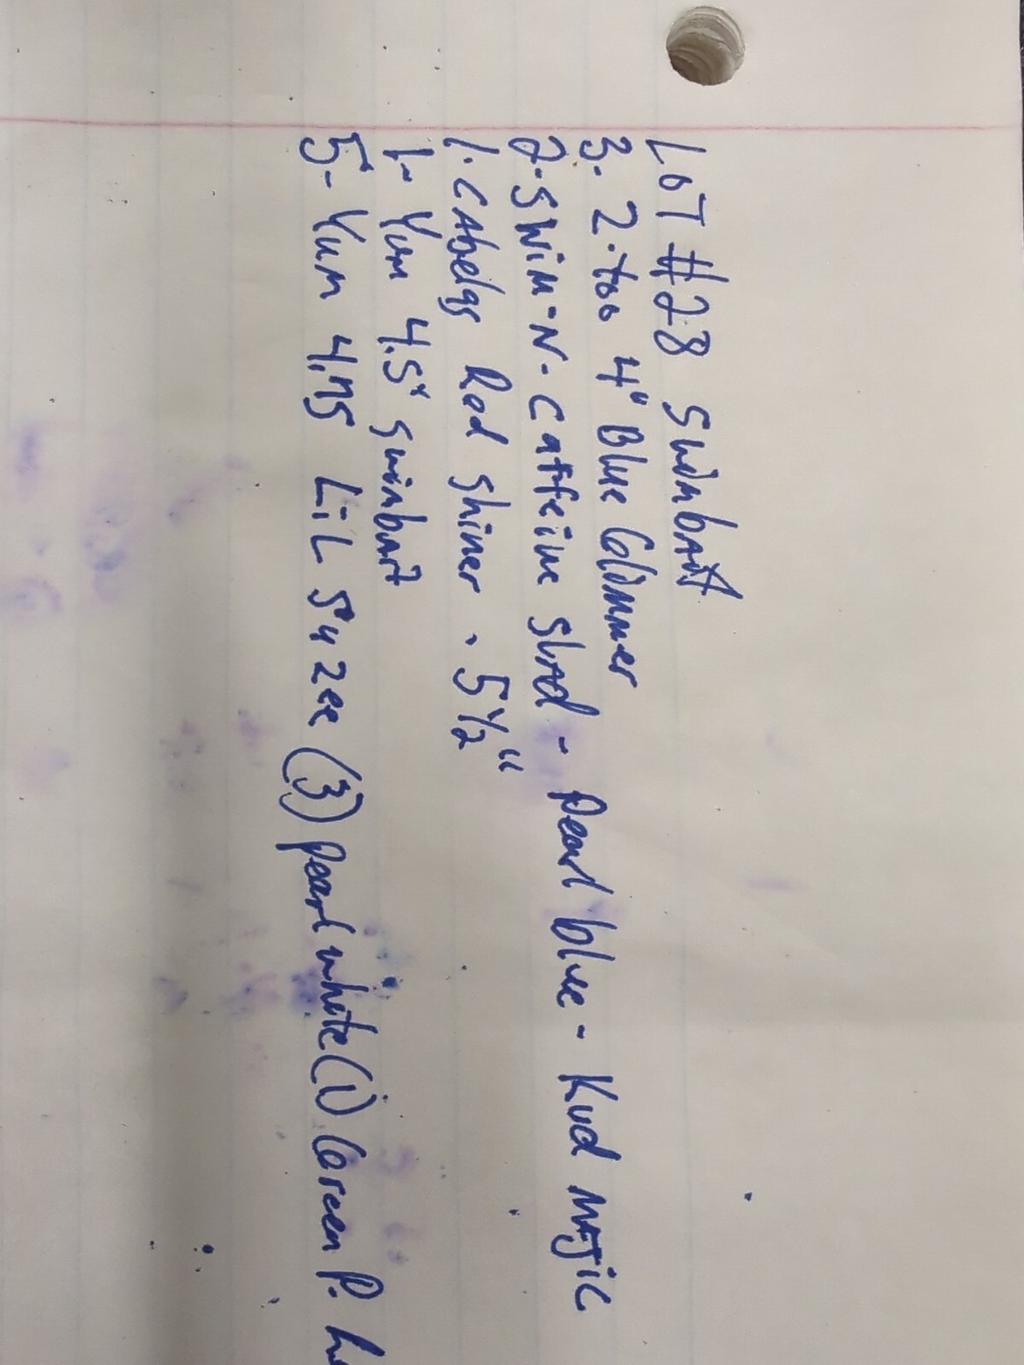 LOT #28 Swimbait
3- 2.too 4" Blue Glimmer
2-SWiM-N-Caffeine Shad - Pearl blue - Kud Magic
1. CAbelas Red shiner - 5 1/2"
1- Yum 4.5" Swimbait
5- Yum 4.75 LiL Suzee (3) pearl white (1) Green P.